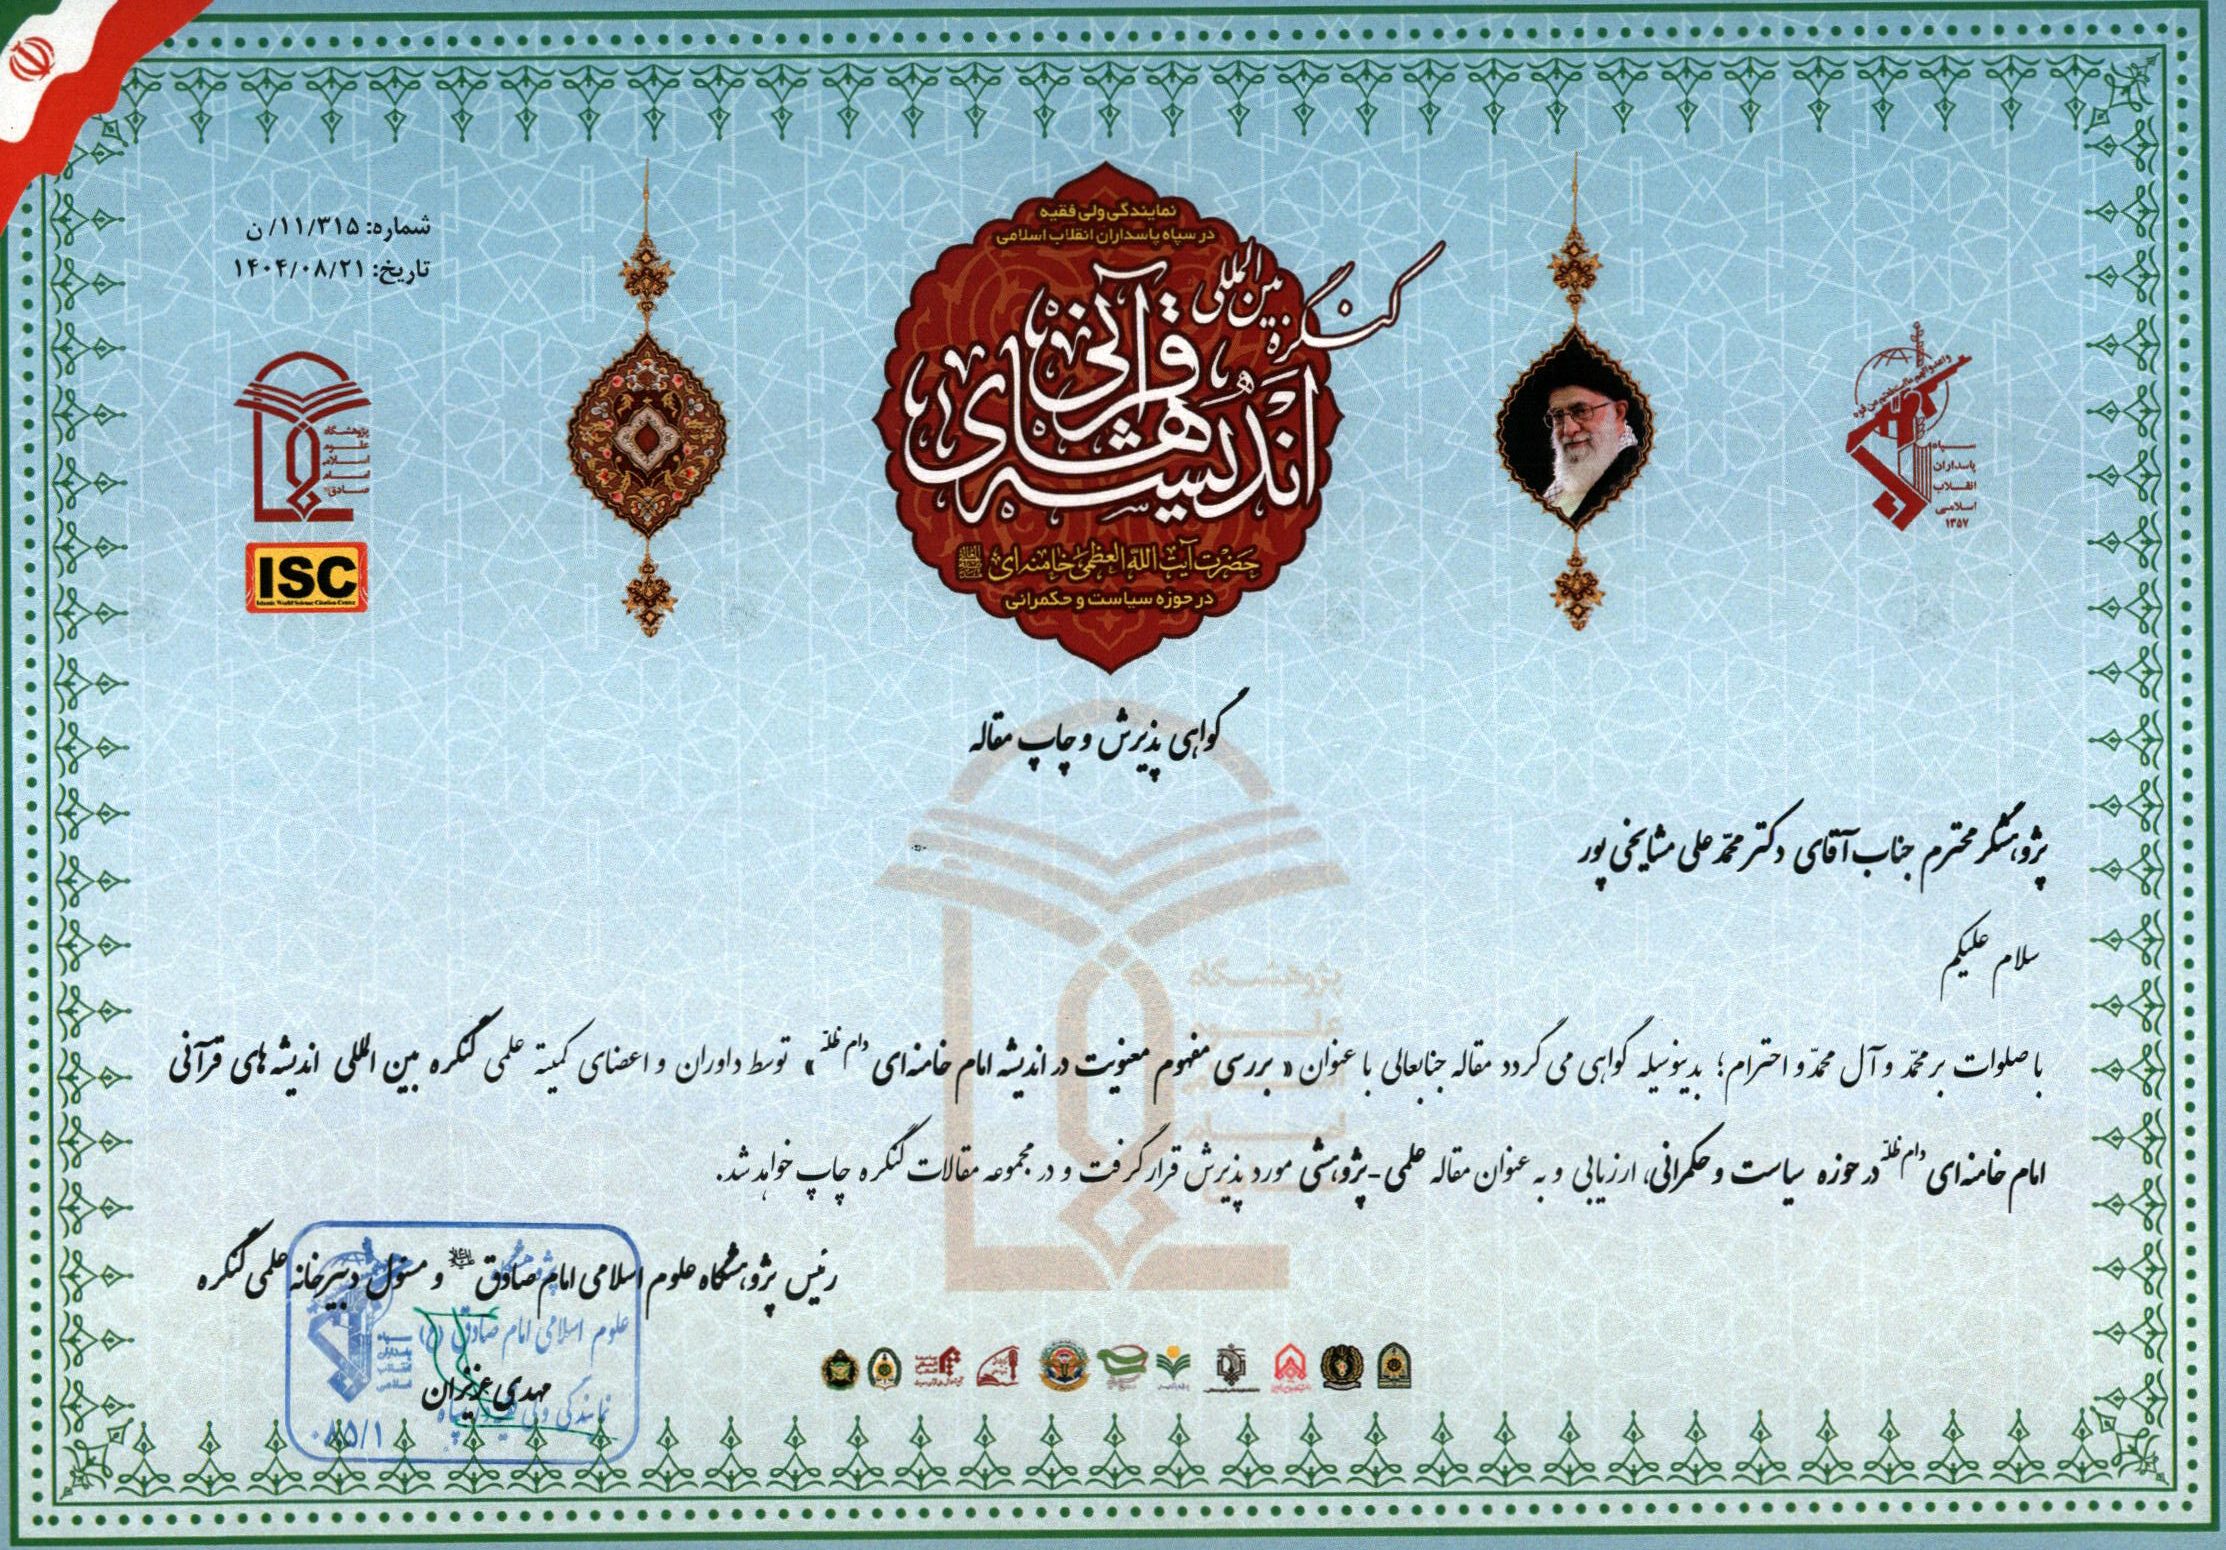 شماره: ۱۱/۳۱۵/ن
تاریخ: ۱۴۰۴/۰۸/۲۱
نمایندگی ولی فقیه
در سپاه پاسداران انقلاب اسلامی
کنگره بین‌المللی
اندیشه‌های قرآنی
حضرت آیت الله العظمی خامنه‌ای
در حوزه سیاست و حکمرانی
پژوهشگاه
علوم
اسلامی
امام
صادق
ISC
Islamic World Science Citation Center
سپاه
پاسداران
انقلاب
اسلامی
۱۳۵۷
گواهی پذیرش و چاپ مقاله
پژوهشگر محترم جناب آقای دکتر محمّد علی مشایخی پور
سلام علیکم
با صلوات بر محمّد و آل محمّد و احترام؛ بدینوسیله گواهی می گردد مقاله جنابعالی با عنوان « بررسی مفهوم معنویت در اندیشه امام خامنه‌ای دام ظلّه » توسط داوران و اعضای کمیته علمی کنگره بین المللی اندیشه های قرآنی
امام خامنه‌ای دام ظلّه در حوزه سیاست و حکمرانی، ارزیابی و به عنوان مقاله علمی-پژوهشی مورد پذیرش قرار گرفت و در مجموعه مقالات کنگره چاپ خواهد شد.
رئیس پژوهشگاه علوم اسلامی امام صادق و مسئول دبیرخانه علمی کنگره
علوم اسلامی امام صادق (ع)
مهدی عزیزان
نمایندگی ولی فقیه در سپاه